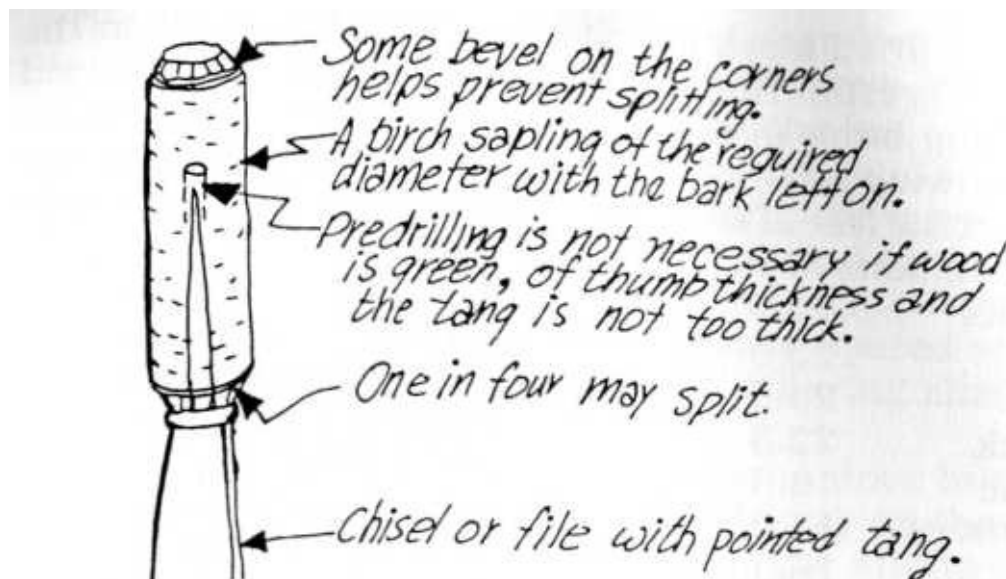 Some bevel on the corners
helps prevent splitting.
A birch sapling of the required
diameter with the bark left on.
Predrilling is not necessary if wood
is green, of thumb thickness and
the tang is not too thick.
One in four may split.
Chisel or file with pointed tang.